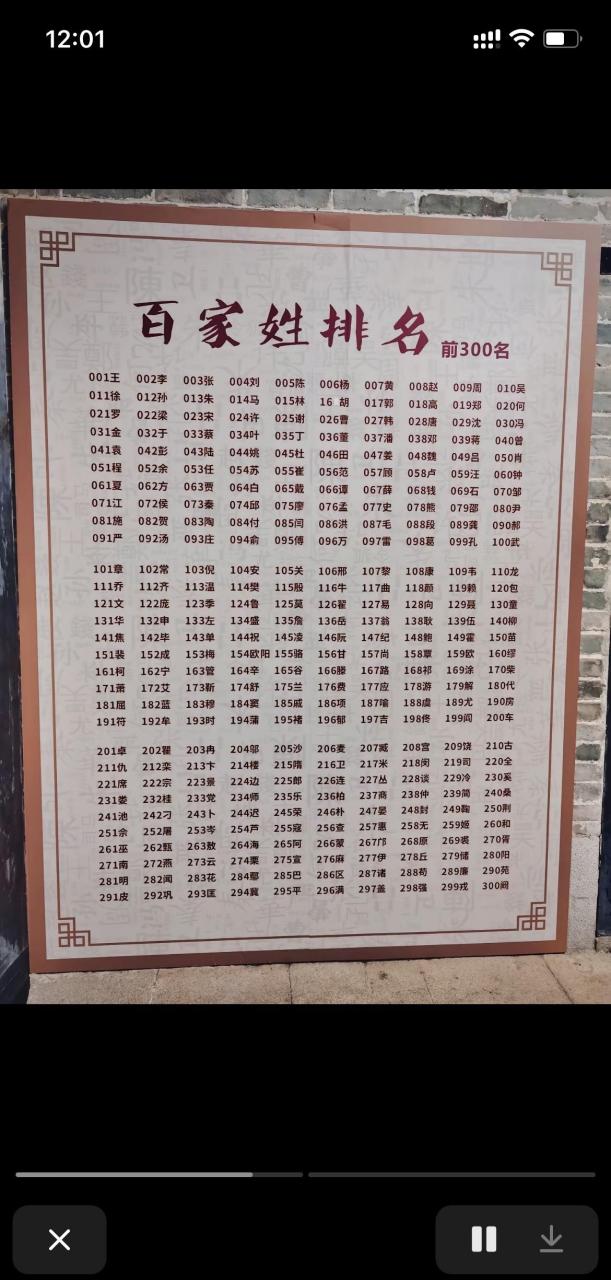 12:01
百家姓排名 前300名
001王 002李 003张 004刘 005陈 006杨 007黄 008赵 009周 010吴
011徐 012孙 013朱 014马 015林 16 胡 017郭 018高 019郑 020何
021罗 022梁 023宋 024许 025谢 026曹 027韩 028唐 029沈 030冯
031金 032于 033蔡 034叶 035丁 036董 037潘 038邓 039蒋 040曾
041袁 042彭 043陆 044姚 045杜 046田 047姜 048魏 049吕 050肖
051程 052余 053任 054苏 055崔 056范 057顾 058卢 059汪 060钟
061夏 062方 063贾 064白 065戴 066谭 067薛 068钱 069石 070邹
071江 072侯 073秦 074邱 075廖 076孟 077史 078熊 079邵 080尹
081施 082贺 083陶 084付 085闫 086洪 087毛 088段 089龚 090郝
091严 092汤 093庄 094俞 095傅 096万 097雷 098葛 099孔 100武
101章 102常 103倪 104安 105关 106邢 107黎 108康 109韦 110龙
111乔 112齐 113温 114樊 115殷 116牛 117曲 118颜 119赖 120包
121文 122庞 123季 124鲁 125莫 126翟 127易 128向 129聂 130童
131华 132申 133左 134盛 135詹 136岳 137翁 138耿 139伍 140柳
141焦 142毕 143单 144祝 145凌 146阮 147纪 148鲍 149霍 150苗
151裴 152成 153梅 154欧阳 155骆 156甘 157尚 158覃 159欧 160缪
161柯 162宁 163管 164辛 165谷 166滕 167路 168祁 169涂 170柴
171萧 172艾 173靳 174舒 175兰 176费 177应 178游 179解 180代
181屈 182蓝 183穆 184窦 185戚 186项 187喻 188虞 189尤 190房
191符 192牟 193时 194蒲 195褚 196郁 197吉 198佟 199阎 200车
201卓 202瞿 203冉 204邬 205沙 206麦 207臧 208宫 209饶 210古
211仇 212栾 213卞 214楼 215隋 216卫 217米 218闵 219司 220全
221席 222宗 223景 224边 225郎 226连 227丛 228谈 229冷 230奚
231娄 232桂 233党 234师 235乐 236柏 237商 238仲 239简 240桑
241池 242刁 243卜 244迟 245荣 246朴 247晏 248封 249鞠 250荆
251佘 252屠 253岑 254芦 255寇 256查 257惠 258无 259姬 260和
261巫 262甄 263敖 264海 265阿 266蒙 267邝 268原 269裘 270胥
271南 272燕 273云 274栗 275宣 276麻 277伊 278丘 279储 280阳
281明 282闻 283花 284鄢 285巴 286区 287诸 288苟 289廉 290苑
291皮 292巩 293匡 294冀 295平 296满 297盖 298强 299戎 300阙